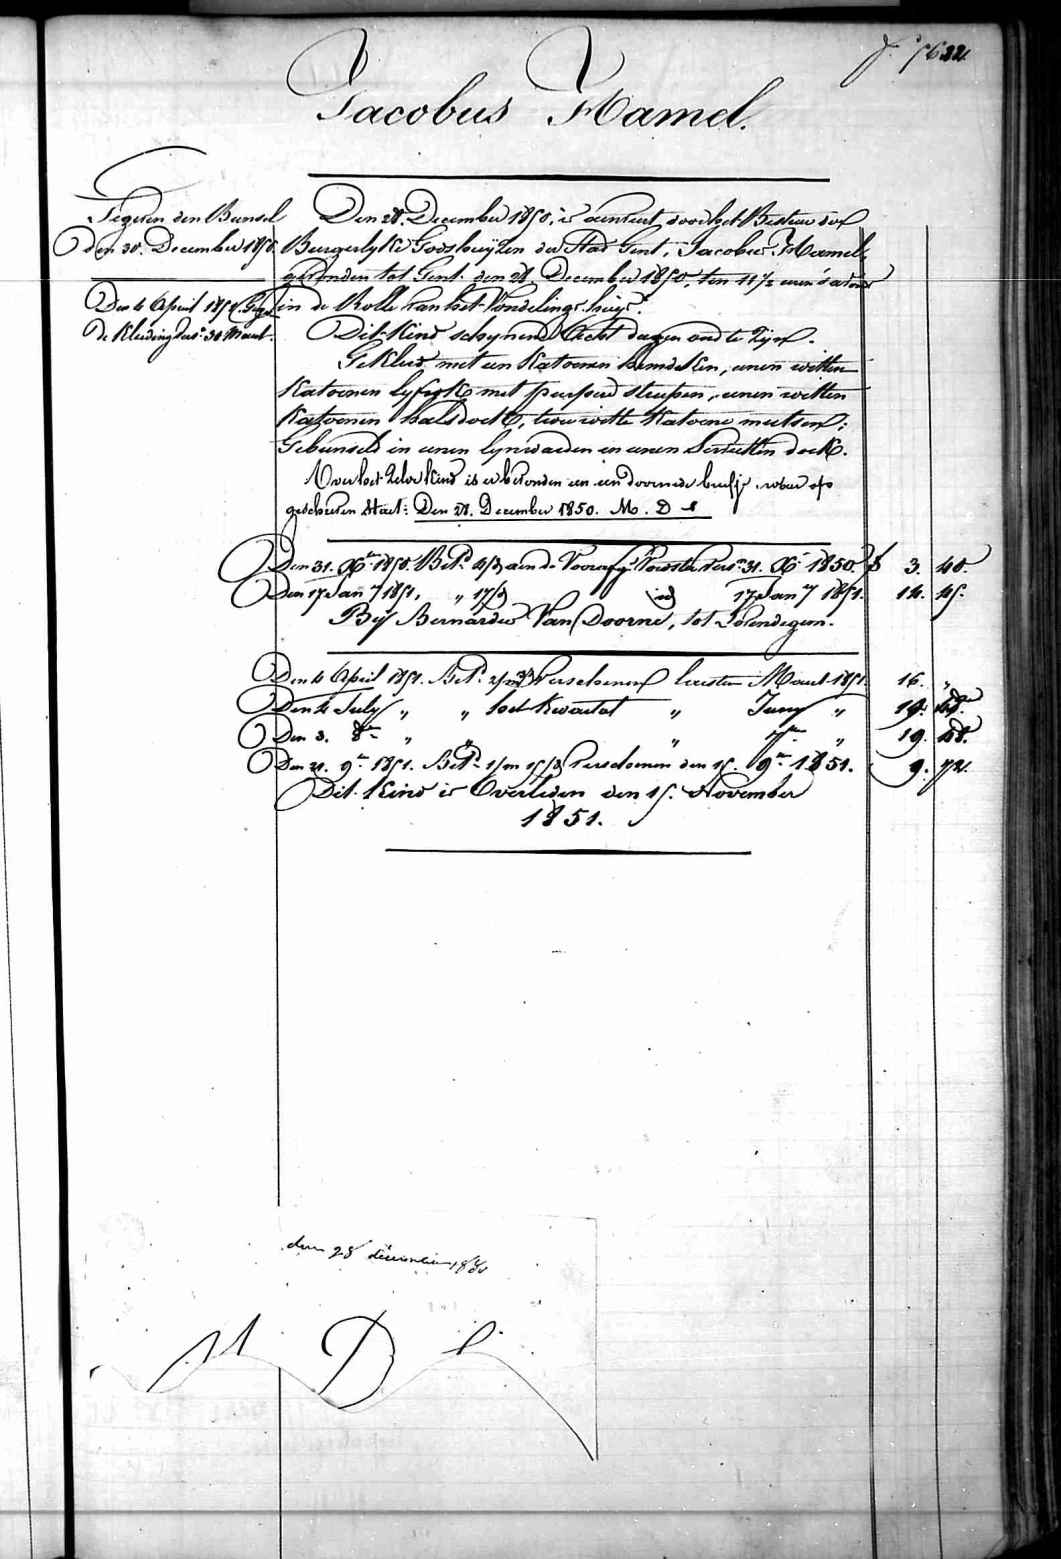 Jacobus Hamel.
Tegeven den Bunsel
den 30. December 1850.
Den 4 April 1851.
de Kleeding 31 Maart.
Den 28. December 1850, is aenveert door het Bestuer der
Burgerlyke Godshuyzen der Stad Gent, Jacobus Hamel,
gevonden tot Gent den 28 December 1850, ten 11 1/2 uren 's avonds
in de Rolle van het Vondelings huys.
Dit Kind schynend acht dagen oud te zyn.
Gekleed met een Katoenen hemdeken, eenen witten
Katoenen lyfrok met purpere streepen, eenen witten
Katoenen halsdoek, twee witte Katoene mutsen;
Gebunseld in eenen lynwaeden en eenen doek.
Over het zelve Kind is er bevonden een doorneden briefje waer op
geschreven staet: Den 28. December 1850. M. D
Den 31. Xbr 1850. 31. Xbr 1850. 3. 40
Den 17 Jany 1851, " 17/ id 17 Jany 1851. 14. 45.
By Bernardus Van Doorne, tot Lovendegem.
Den 4 April 1851. Verschenen laesten Maart 1851. 16. "
Den 4 July " " het kwartal " Juny " 19. 48.
Den 3. 8br " " " 7br " 19. 48.
Den 21. 9br 1851. Verschenen den 15. 9br 1851. 9. 72.
Dit Kind is Overleden den 15. November
1851.
den 28 december 1850
M D